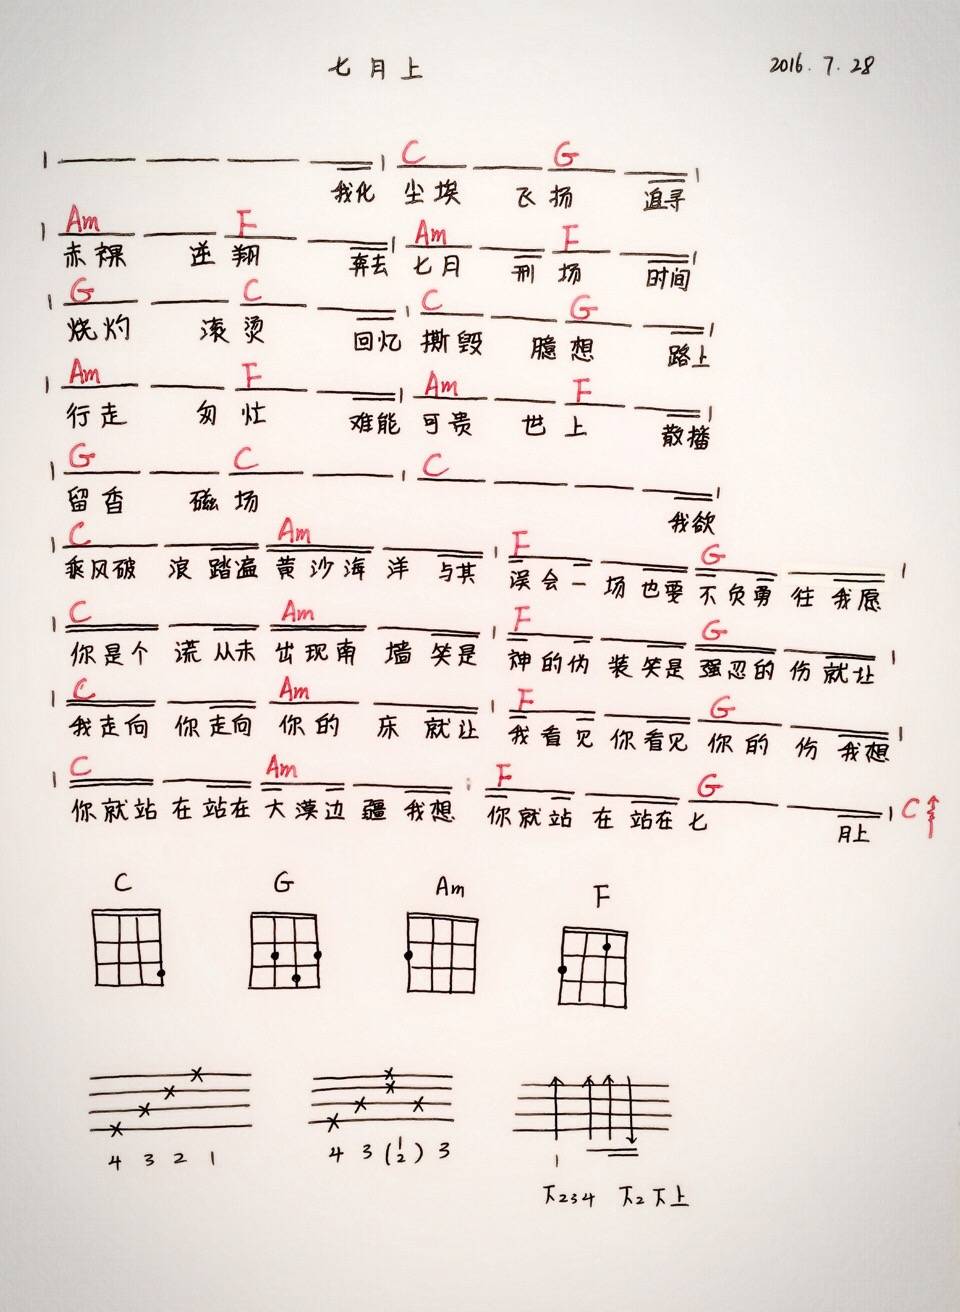 七月上 2016.7.28
C G
我化 尘埃 飞扬 追寻
Am F Am F
赤裸 逆翔 奔去 七月 刑场 时间
G C C G
烧灼 滚烫 回忆 撕毁 臆想 路上
Am F Am F
行走 匆忙 难能 可贵 世上 散播
G C C
留香 磁场 我欲
C Am F G
乘风破 浪 踏遍 黄沙海 洋 与其 误会一 场 也要 不负勇 往 我愿
C Am F G
你是个 谎 从未 出现南 墙 笑是 神的伪 装 笑是 强忍的 伤 就让
C Am F G
我走向 你 走向 你的 床 就让 我看见 你 看见 你的 伤 我想
C Am F G C
你就站 在 站在 大漠边 疆 我想 你就站 在 站在 七 月上
C G Am F
4 3 2 1 4 3 (1/2) 3 1
下234 下2下上